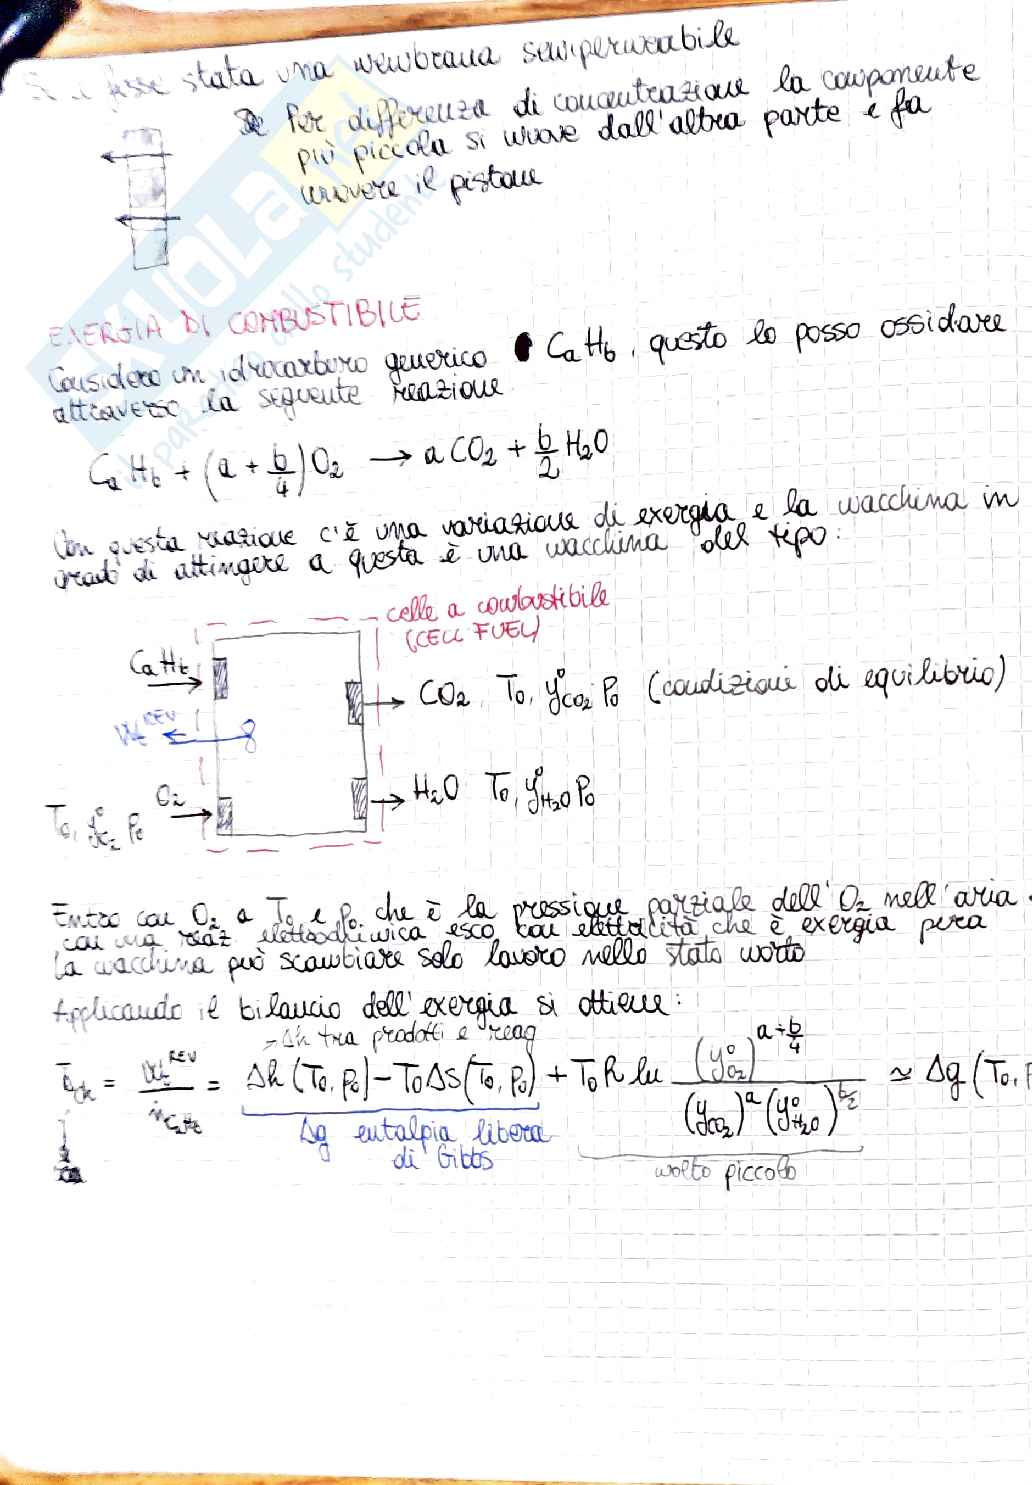 Se ci fosse stata una membrana semipermeabile
Per differenza di concentrazione la componente
più piccola si muove dall'altra parte e fa
muovere il pistone
SKUOLA
EXERGIA DI COMBUSTIBILE
Considero un idrocarburo generico CaHb, questo lo posso ossidare
attraverso la seguente reazione
CaHb + (a + b/4) O2 → a CO2 + b/2 H2O
Con questa reazione c'è una variazione di exergia e la macchina in
grado di attingere a questa è una macchina del tipo:
celle a combustibile
(CELL FUEL)
CaHb
CO2 T0, y°CO2 P0 (condizioni di equilibrio)
Wt REV
O2
H2O T0, y°H2O P0
T0, y°O2 P0
Entro con O2 a T0 e P0 che è la pressione parziale dell'O2 nell'aria.
con una reaz elettrochimica esco con elettricità che è exergia pera
la macchina può scambiare solo lavoro nello stato morto
Applicando il bilancio dell'exergia si ottiene:
Δh tra prodotti e reag
= Wt REV / ṅCaHb = Δh (T0, P0) - T0 Δs (T0, P0) + T0 R ln (y°O2)^(a + b/4) / (yCO2)^a (y°H2O)^(b/2) ≃ Δg (T0, P
Δg entalpia libera
di Gibbs
molto piccolo